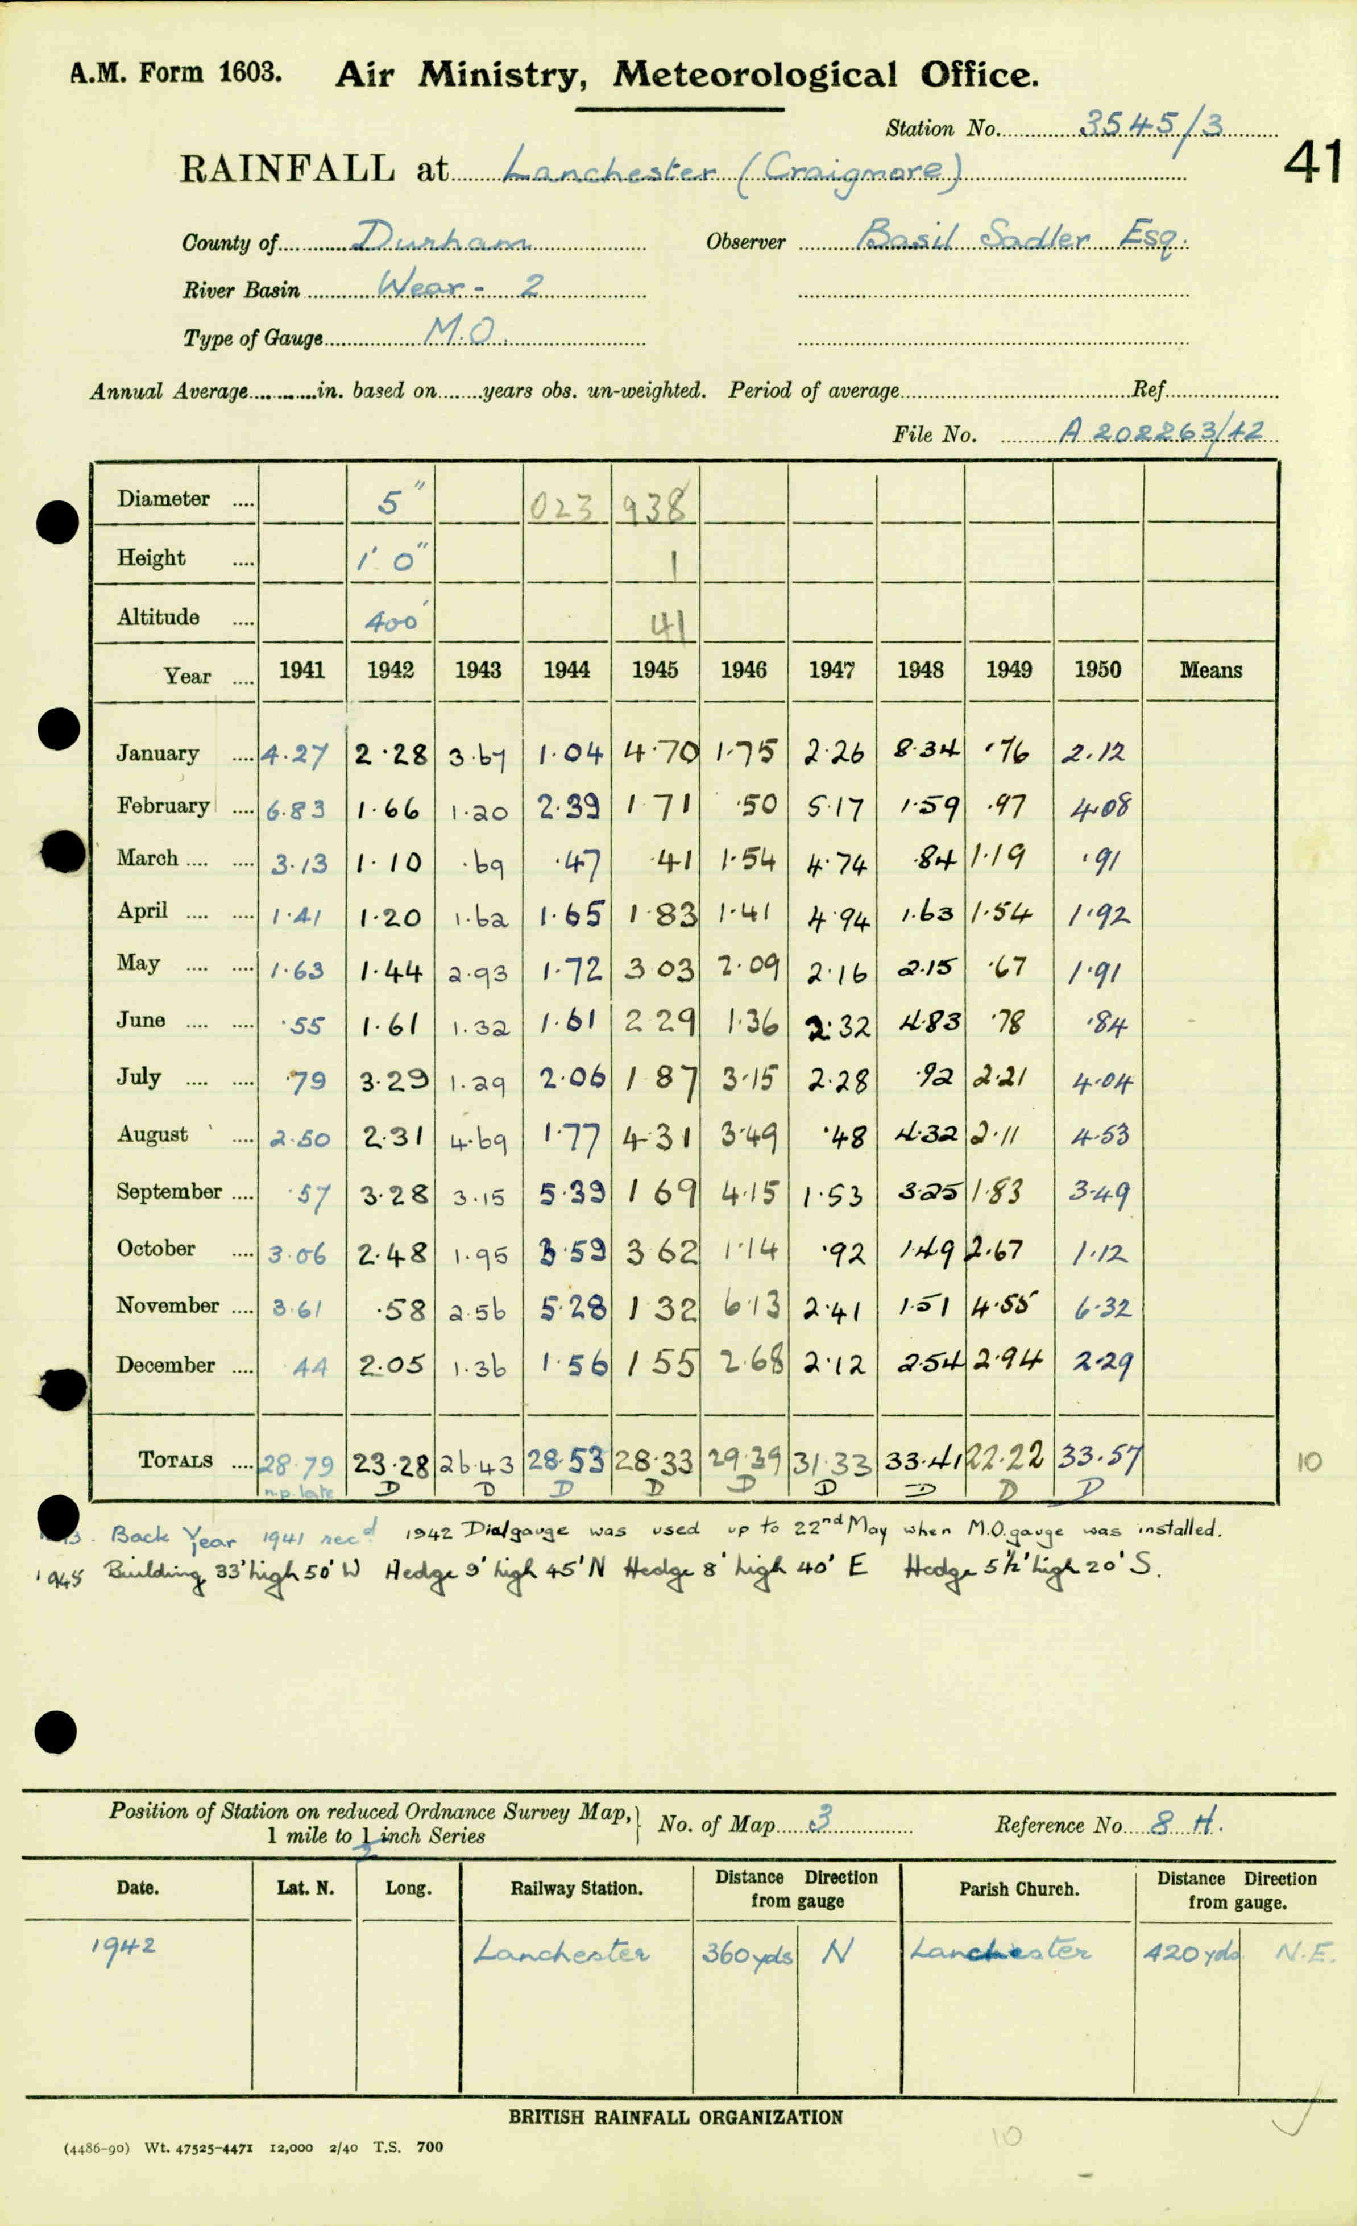 A.M. Form 1603. Air Ministry, Meteorological Office.
Station No. 3545/3
41
RAINFALL at Lanchester (Craigmore)
County of Durham Observer Basil Sadler Esq.
River Basin Wear - 2
Type of Gauge M.O.
Annual Average in. based on years obs. un-weighted. Period of average Ref.
File No. A 202263/42
Diameter 5" 023 938
Height 1' 0" 1
Altitude 400' 41
Year 1941 1942 1943 1944 1945 1946 1947 1948 1949 1950 Means
January 4.27 2.28 3.67 1.04 4.70 1.75 2.26 8.34 .76 2.12
February 6.83 1.66 1.20 2.39 1 71 .50 5.17 1.59 .97 4.08
March 3.13 1.10 .69 .47 .41 1.54 4.74 .84 1.19 .91
April 1.41 1.20 1.62 1.65 1.83 1.41 4.94 1.63 1.54 1.92
May 1.63 1.44 2.93 1.72 3 03 2.09 2.16 2.15 .67 1.91
June .55 1.61 1.32 1.61 2 29 1.36 2.32 4.83 .78 .84
July .79 3.29 1.29 2.06 1 87 3.15 2.28 .92 2.21 4.04
August 2.50 2.31 4.69 1.77 4 31 3.49 .48 4.32 2.11 4.53
September .57 3.28 3.15 5.39 1 69 4.15 1.53 3.25 1.83 3.49
October 3.06 2.48 1.95 3.59 3 62 1.14 .92 1.49 2.67 1.12
November 3.61 .58 2.56 5.28 1 32 6.13 2.41 1.51 4.55 6.32
December 44 2.05 1.36 1.56 1 55 2.68 2.12 2.54 2.94 2.29
TOTALS 28.79 23.28 26.43 28.53 28.33 29.39 31.33 33.41 22.22 33.57 10
n.p. late D D D D D D D D D
Back Year 1941 recd 1942 Dial gauge was used up to 22nd May when M.O. gauge was installed.
1945 Building 33' high 50' W Hedge 9' high 45' N Hedge 8' high 40' E Hedge 5½' high 20' S.
Position of Station on reduced Ordnance Survey Map, No. of Map 3 Reference No. 8 H.
1 mile to 1 inch Series
2
Date. Lat. N. Long. Railway Station. Distance Direction from gauge Parish Church. Distance Direction from gauge.
1942 Lanchester 360 yds N Lanchester 420 yds N.E.
BRITISH RAINFALL ORGANIZATION
(4486-90) Wt. 47525-4471 12,000 2/40 T.S. 700
10